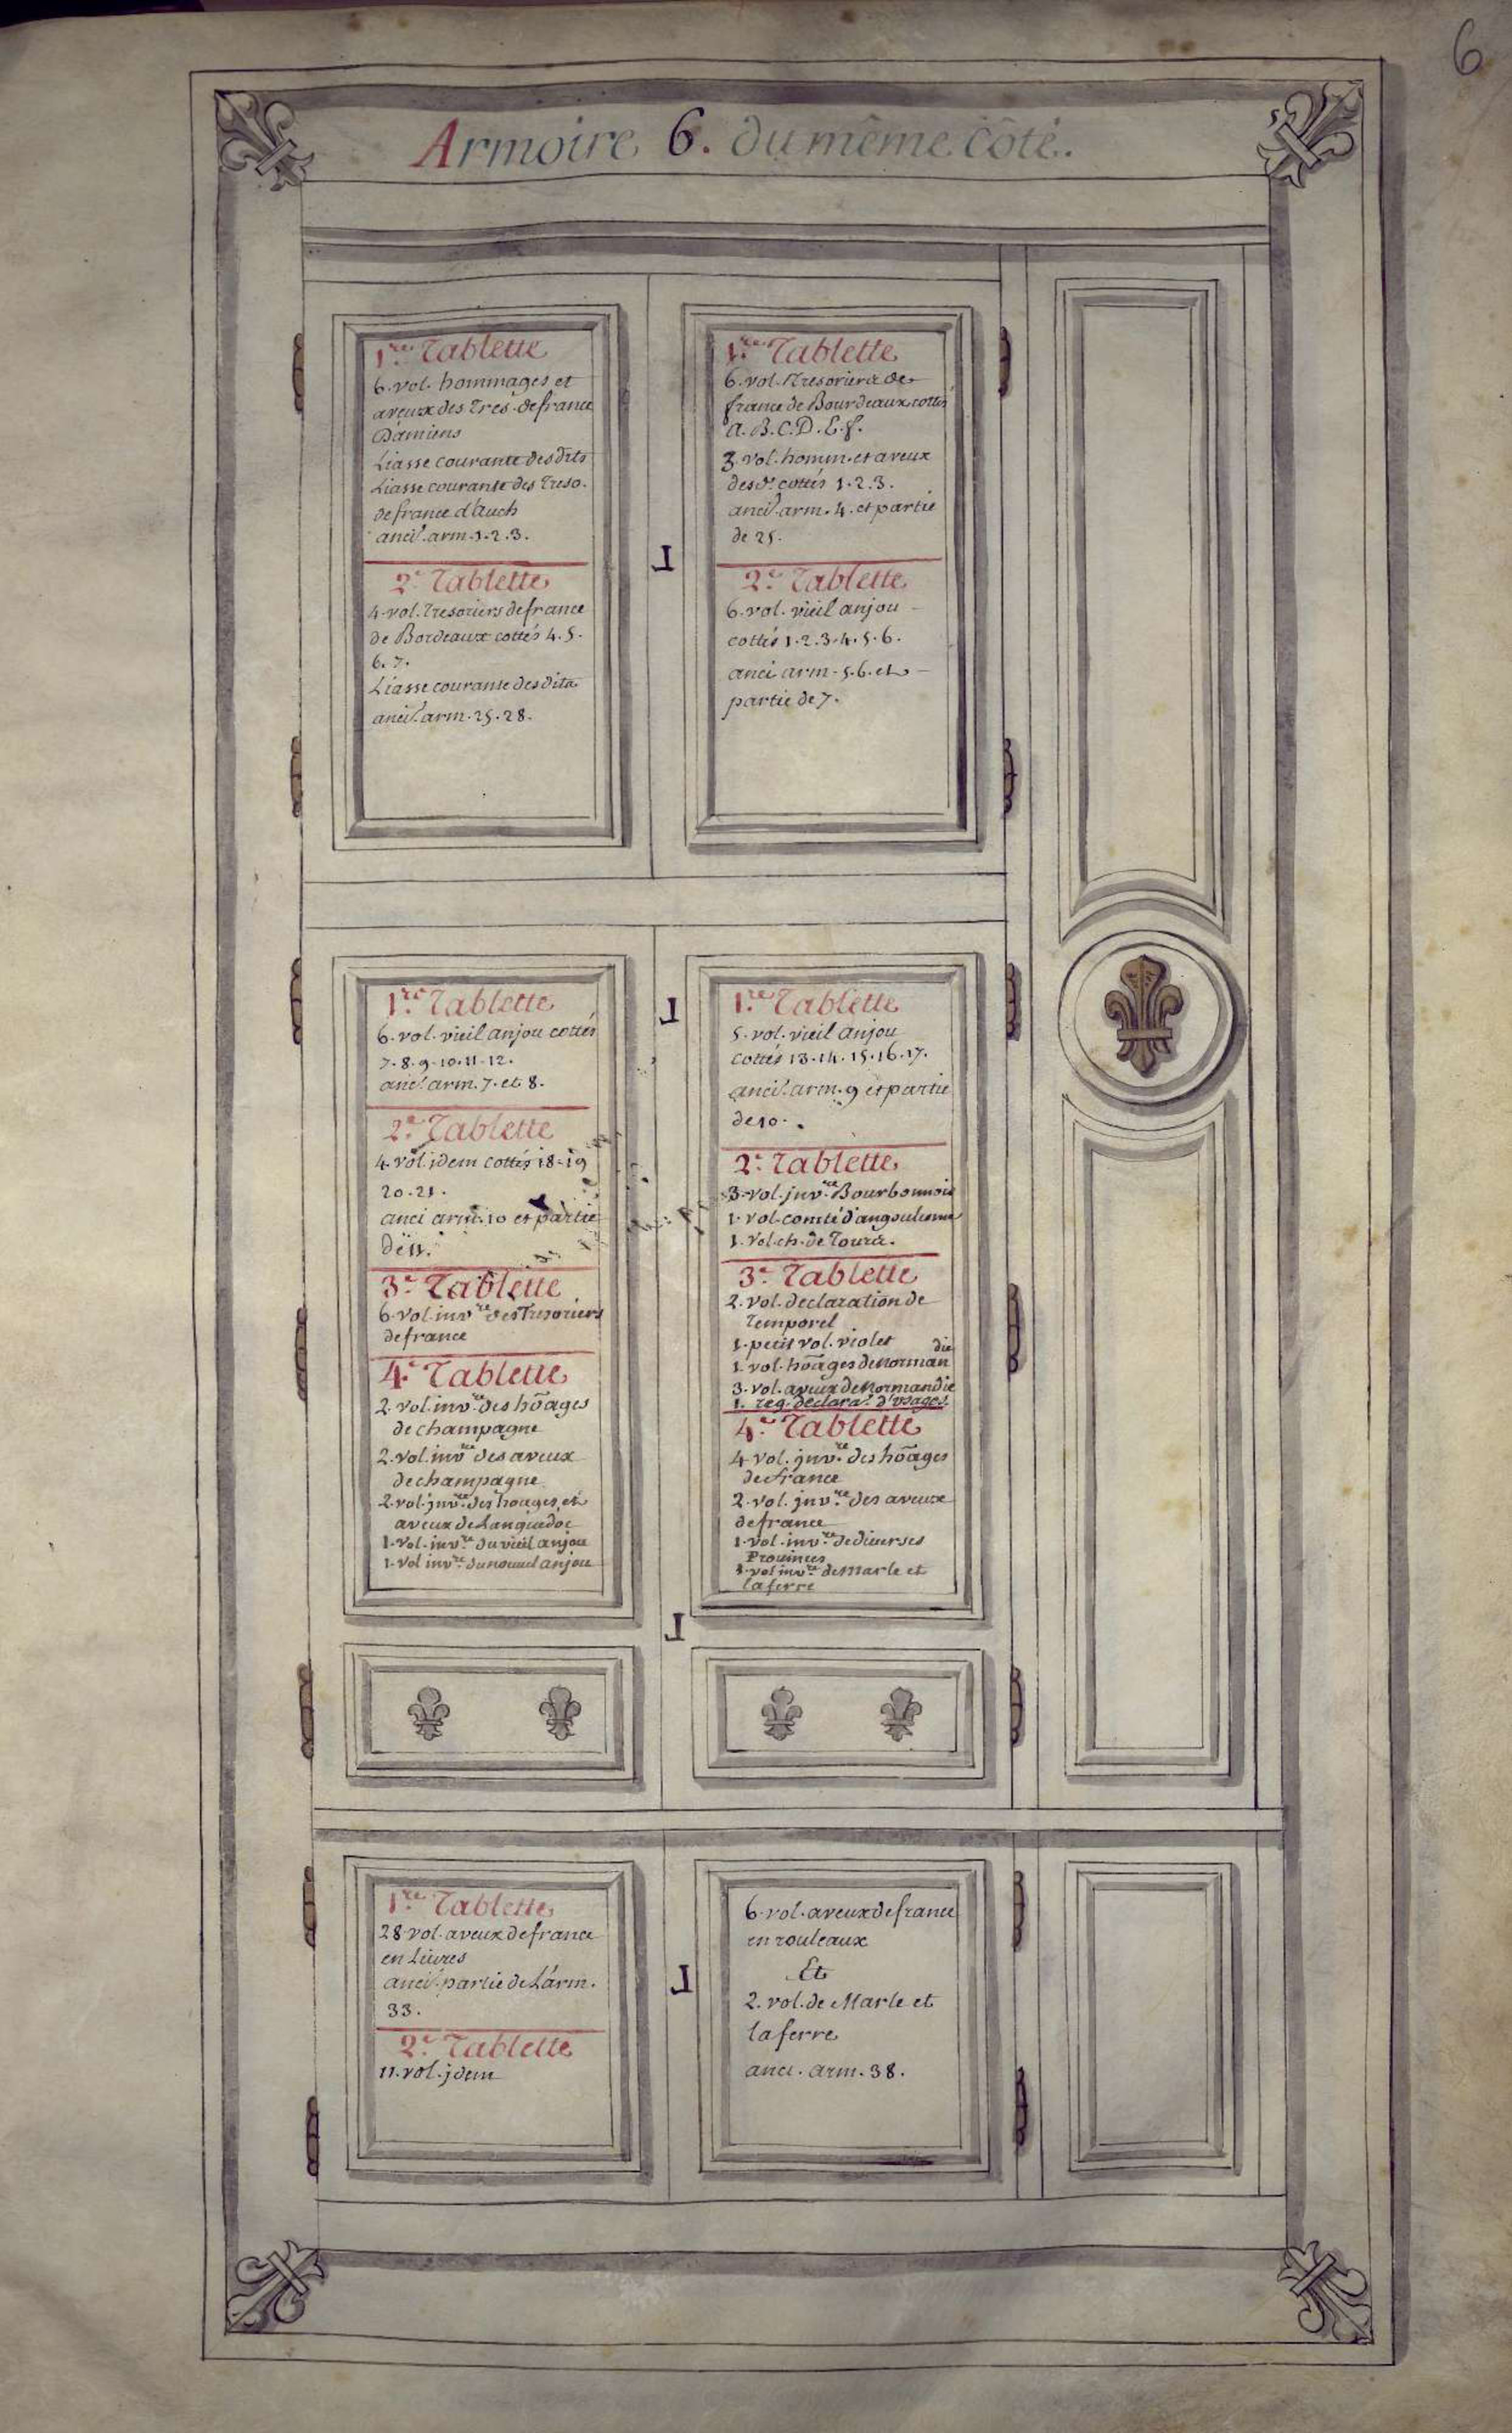 6
Armoire 6. du même côté.
1.re Tablette
6. vol. hommages et
aveux des Tres. de france
D'amiens
Liasse courante des dits
Liasse courante des Treso.
de france d'Auch
anci.t arm. 1. 2. 3.
2.e Tablette
4. vol. Tresoriers de france
de Bordeaux cottés 4. 5.
6. 7.
Liasse courante des dits
anci.t arm. 25. 28.
1.re Tablette
6. vol. de
france de Bourdeaux cottés
A. B. C. D. E. f.
3. vol. homm. et aveux
des d.t cottés 1. 2. 3.
anci.t arm. 4. et partie
de 25.
2.e Tablette
6. vol. vieil anjou
cottés 1. 2. 3. 4. 5. 6.
anci arm. 5. 6. et
partie de 7.
1.re Tablette
6. vol. vieil anjou cottés
7. 8. 9. 10. 11. 12.
anci.t arm. 7. et 8.
2.e Tablette
4. vol. jdem cottés 18. 19
20. 21.
anci arm. 10 et partie
de 11.
3.e Tablette
6. vol. inv.re des Tresoriers
de france
4.e Tablette
2. vol. inv.re des hōages
de champagne
2. vol. inv.re des aveux
de champagne
2. vol. jnv.re des hoages et
aveux de Languedoc
1. vol. inv.re du vieil anjou
1. vol inv.re du nouuel anjou
1.re Tablette
5. vol. vieil anjou
cottés 13. 14. 15. 16. 17.
anci.t arm. 9 et partie
de 10.
2.e Tablette
3. vol. jnv.re Bourbonnois
1. vol. comté d'angoulesme
1. vol. ch. de Tours.
3.e Tablette
2. vol. declaration de
Temporel
1. petit vol. violet
1. vol. hōages de Norman die
3. vol. aveux de Normandie
1. reg. declara.t d'usages.
4.e Tablette
4 vol. jnv.re des hōages
de france
2. vol. jnv.re des aveux
de france
1. vol. inv.re de diuerses
Prouinces
1. vol inv.re de Marle et
la ferre
1.re Tablette
28 vol. aveux de france
en Liures
anci.t partie de L'arm.
33.
2.e Tablette
11. vol. jdem
6. vol. aveux de france
en rouleaux
Et
2. vol. de Marle et
la ferre
anci. arm. 38.